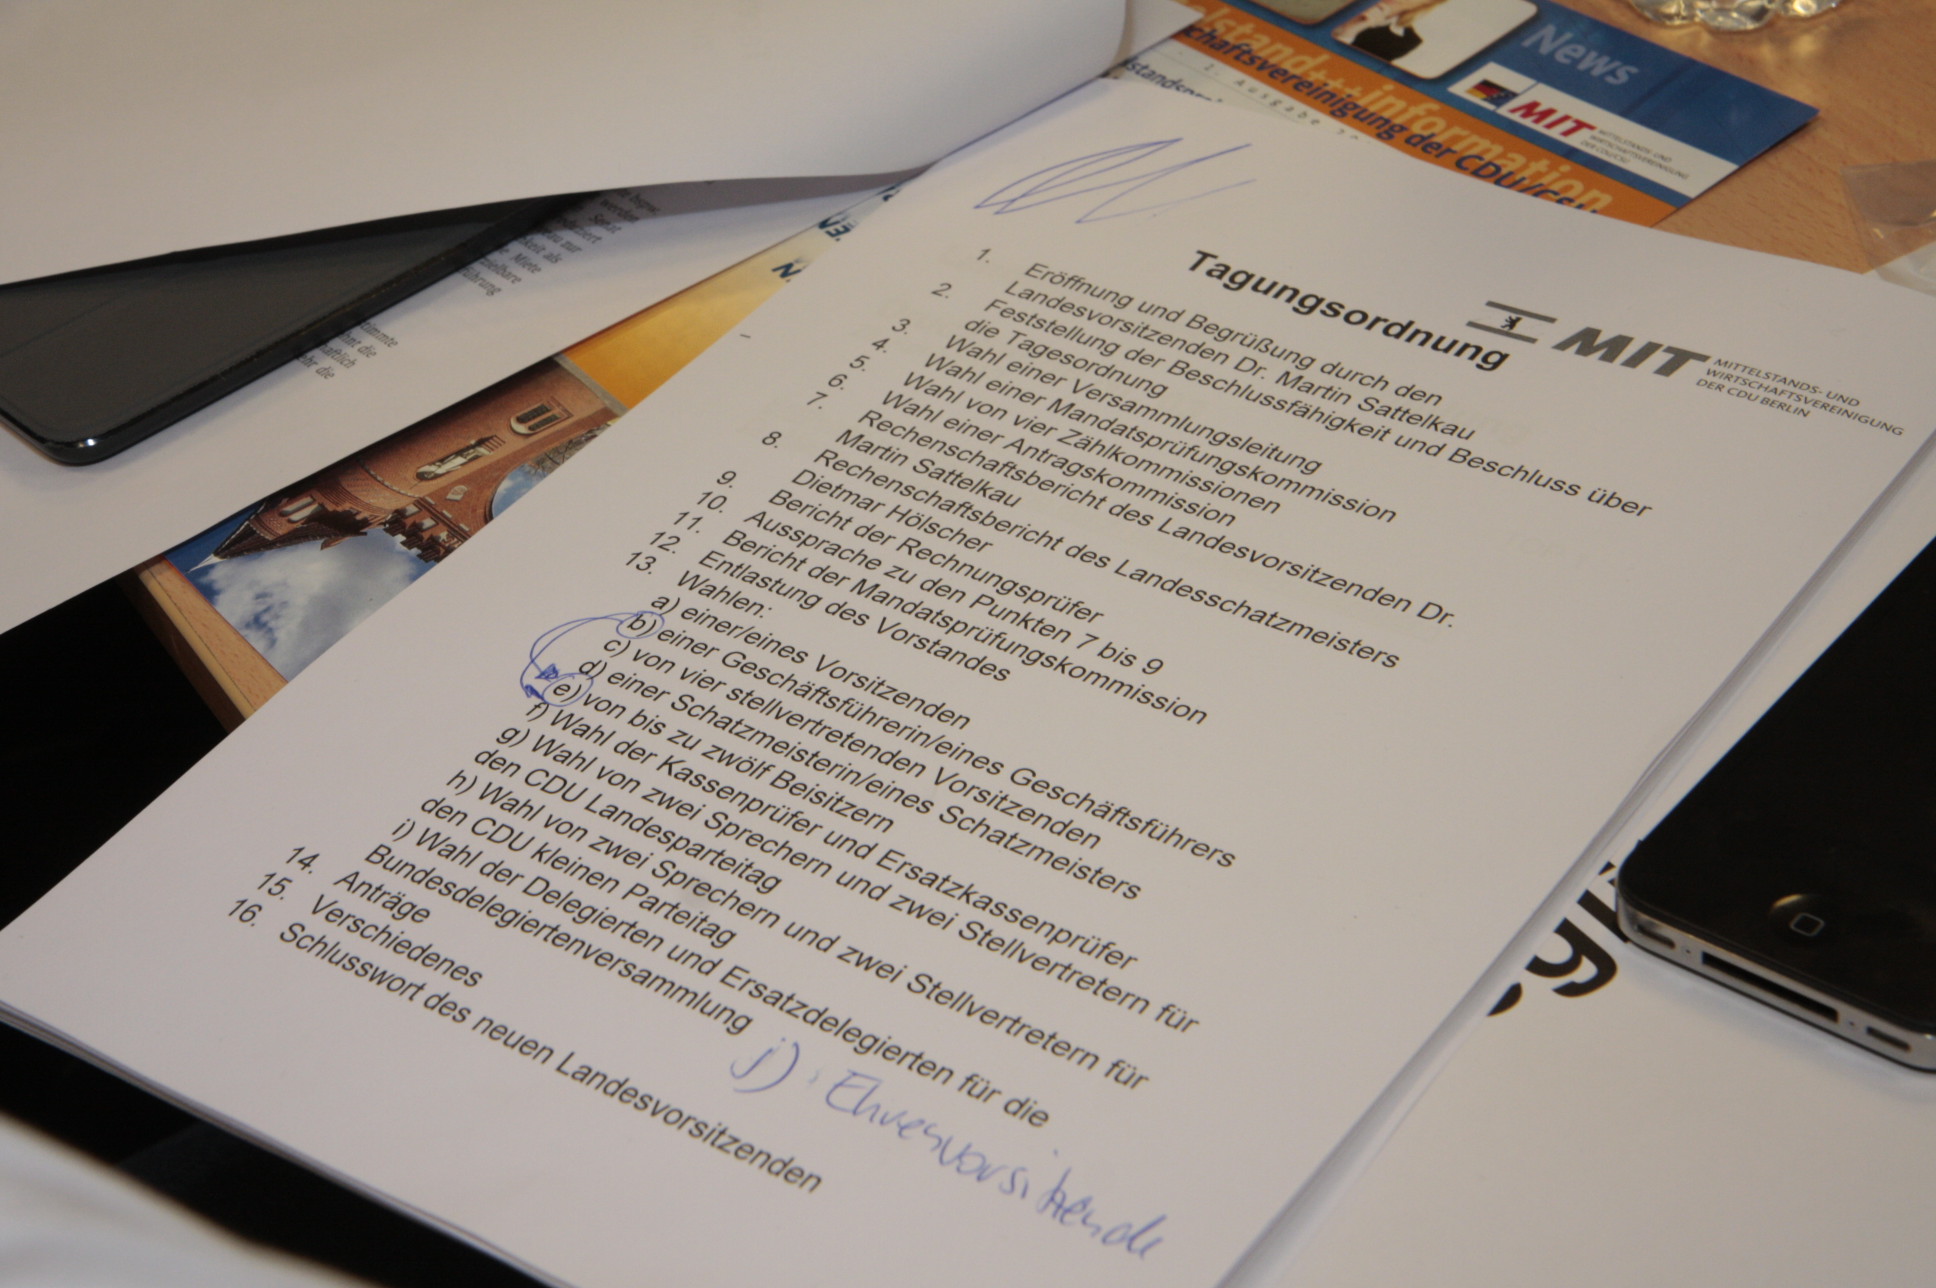 News
MIT
MITTELSTANDS- UND
WIRTSCHAFTSVEREINIGUNG
DER CDU/CSU
information
chaftsvereinigung der CDU/CSU
Tagungsordnung
MIT
MITTELSTANDS- UND
WIRTSCHAFTSVEREINIGUNG
DER CDU BERLIN
1. Eröffnung und Begrüßung durch den
Landesvorsitzenden Dr. Martin Sattelkau
2. Feststellung der Beschlussfähigkeit und Beschluss über
die Tagesordnung
3. Wahl einer Versammlungsleitung
4. Wahl einer Mandatsprüfungskommission
5. Wahl von vier Zählkommissionen
6. Wahl einer Antragskommission
7. Rechenschaftsbericht des Landesvorsitzenden Dr.
Martin Sattelkau
8. Rechenschaftsbericht des Landesschatzmeisters
Dietmar Hölscher
9. Bericht der Rechnungsprüfer
10. Aussprache zu den Punkten 7 bis 9
11. Bericht der Mandatsprüfungskommission
12. Entlastung des Vorstandes
13. Wahlen:
a) einer/eines Vorsitzenden
b) einer Geschäftsführerin/eines Geschäftsführers
c) von vier stellvertretenden Vorsitzenden
d) einer Schatzmeisterin/eines Schatzmeisters
e) von bis zu zwölf Beisitzern
f) Wahl der Kassenprüfer und Ersatzkassenprüfer
g) Wahl von zwei Sprechern und zwei Stellvertretern für
den CDU Landesparteitag
h) Wahl von zwei Sprechern und zwei Stellvertretern für
den CDU kleinen Parteitag
i) Wahl der Delegierten und Ersatzdelegierten für die
Bundesdelegiertenversammlung
j) Ehrenvorsitzende
14. Anträge
15. Verschiedenes
16. Schlusswort des neuen Landesvorsitzenden